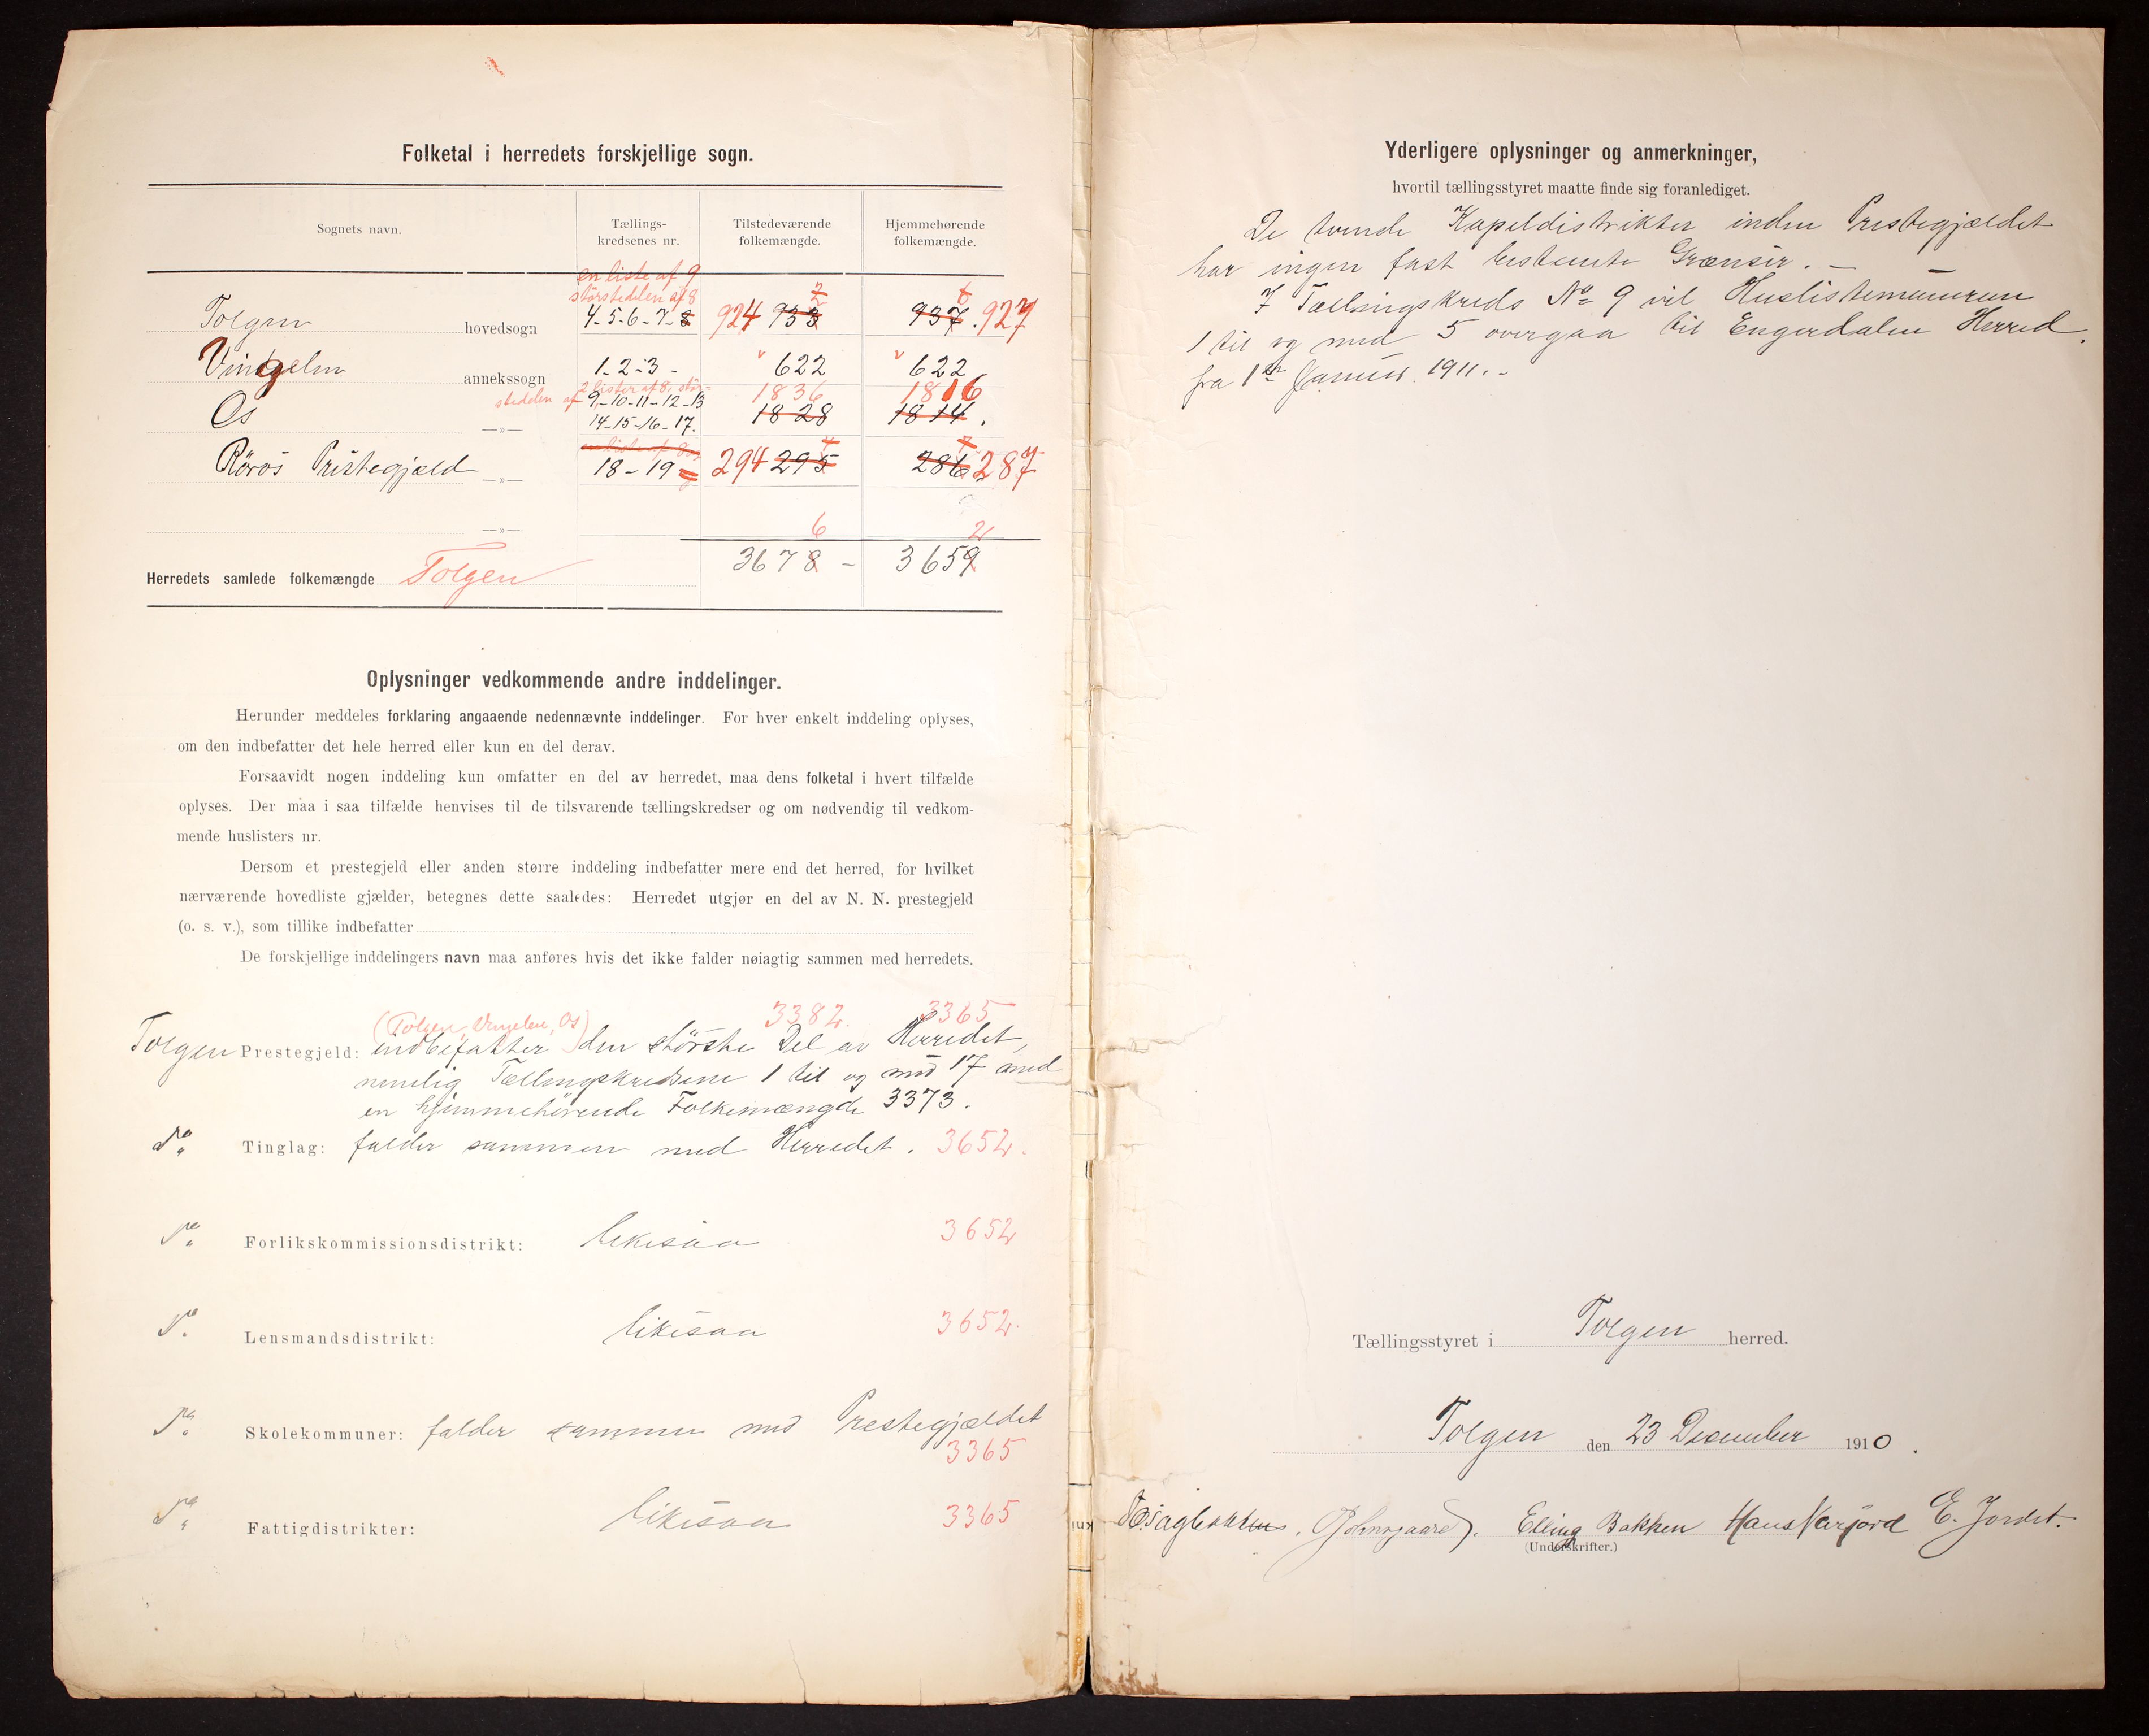 Folketal i herredets forskjellige sogn.
Sognets navn.
Tællings-
kredsenes nr.
Tilstedeværende
folkemængde.
Hjemmehørende
folkemængde.
en liste af 9
størstedelen af 8
Tolgen hovedsogn 4-5-6-7-8 924 933 937. 927
Vingelen annekssogn 1-2-3- 622 622
2 lister af 8, stør-
stedelen af 9-10-11-12-13 1836 1816
Os —»— 14-15-16-17. 1828 1814.
Röros Prestegjæld —»— 18-19 294 295 286 287
—»— 6 2
Herredets samlede folkemængde Tolgen 3678 - 3659
Oplysninger vedkommende andre inddelinger.
Herunder meddeles forklaring angaaende nedennævnte inddelinger. For hver enkelt inddeling oplyses,
om den indbefatter det hele herred eller kun en del derav.
Forsaavidt nogen inddeling kun omfatter en del av herredet, maa dens folketal i hvert tilfælde
oplyses. Der maa i saa tilfælde henvises til de tilsvarende tællingskredser og om nødvendig til vedkom-
mende huslisters nr.
Dersom et prestegjeld eller anden større inddeling indbefatter mere end det herred, for hvilket
nærværende hovedliste gjælder, betegnes dette saaledes: Herredet utgjør en del av N. N. prestegjeld
(o. s. v.), som tillike indbefatter
De forskjellige inddelingers navn maa anføres hvis det ikke falder nøiagtig sammen med herredets.
(Tolgen, Vingelen, Os) 3382. 3365
Tolgen Prestegjeld: indbefatter den største Del av Herredet,
nemlig Tællingskredsene 1 til og med 17 med
en hjemmehörende Folkemængde 3373.
Do Tinglag: falder sammen med Herredet. 3652.
Do Forlikskommissionsdistrikt: likesaa 3652
Do Lensmandsdistrikt: likesaa 3652.
Do Skolekommuner: falder sammen med Prestegjældet
3365
Do Fattigdistrikter: likesaa 3365
Yderligere oplysninger og anmerkninger,
hvortil tællingsstyret maatte finde sig foranlediget.
De tvende Kapeldistrikter inden Prestegjældet
har ingen fast bestemte Grænser. -
I Tællingskreds No 9 vil Huslistenumrene
1 til og med 5 overgaa til Engerdalen Herred
fra 1ste Januar 1911. -
Tællingsstyret i Tolgen herred.
Tolgen den 23 December 1910.
Elling Bakken Hans E. Jordet.
(Underskrifter.)